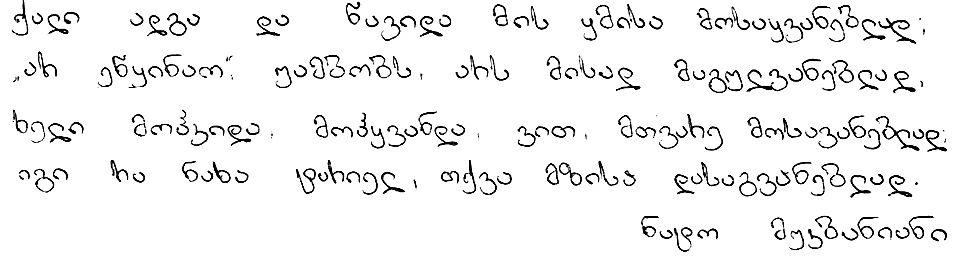 ქალი ადგა და წავიდა მის ყმისა მოსაყვანებლად;
„არ ეწყინაო“, უამბობს, არს მისად მაგულვანებლად,
ხელი მოჰკიდა, მოჰყვანდა, ვით, მთვარე მოსავანებლად;
იგი რა ნახა ტარიელ, თქვა მზისა დასაგვანებლად.
ნატო მუკბანიანი